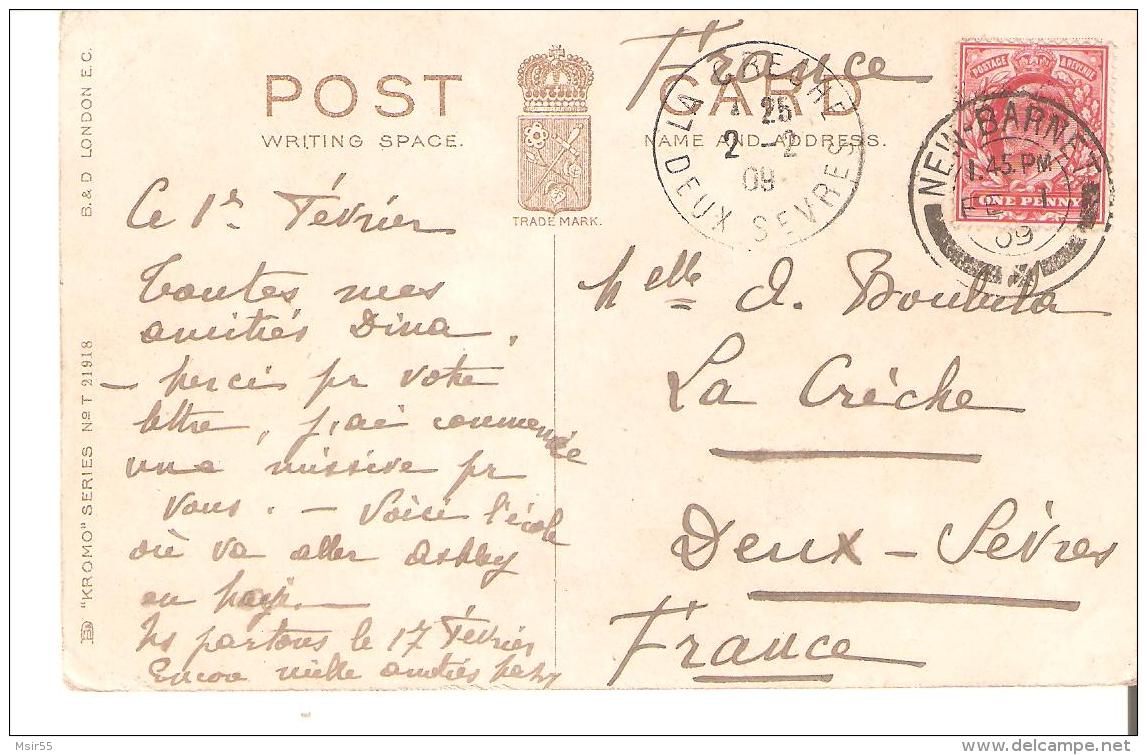 B. & D. LONDON E.C.
"KROMO" SERIES No T 21918
POST CARD
WRITING SPACE.
NAME AND ADDRESS.
TRADE MARK.
France
LA CRECHE
25
2 - 2
09
DEUX SEVRES
POSTAGE & REVENUE
ONE PENNY
NEW-BARNET
1.45 PM
FE 1
09
Ce 1er Février
Toutes mes
amitiés Dina,
— Merci pr votre
lettre, j'ai commencé
une missive pr
vous. — Voici l'école
où va aller Ashby
en
Ns partons le 17 Février
Encore mille amitiés
Melle
La Crèche
Deux-Sèvres
France
Msir55
delcampe.net